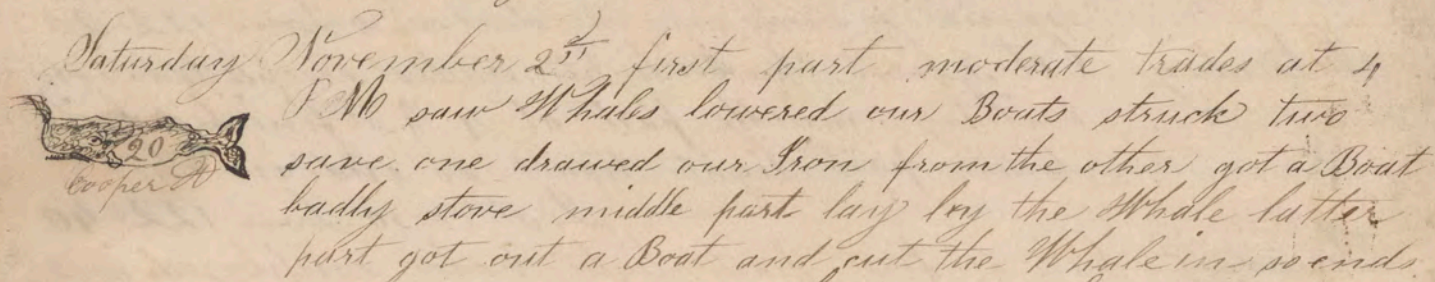 Saturday November 2d first part moderate trades at 4
P M saw Whales lowered our Boats struck two
20
save one drawed our Iron from the other got a Boat
Cooper
badly stove middle part lay by the Whale latter
part got out a Boat and cut the Whale in so ends